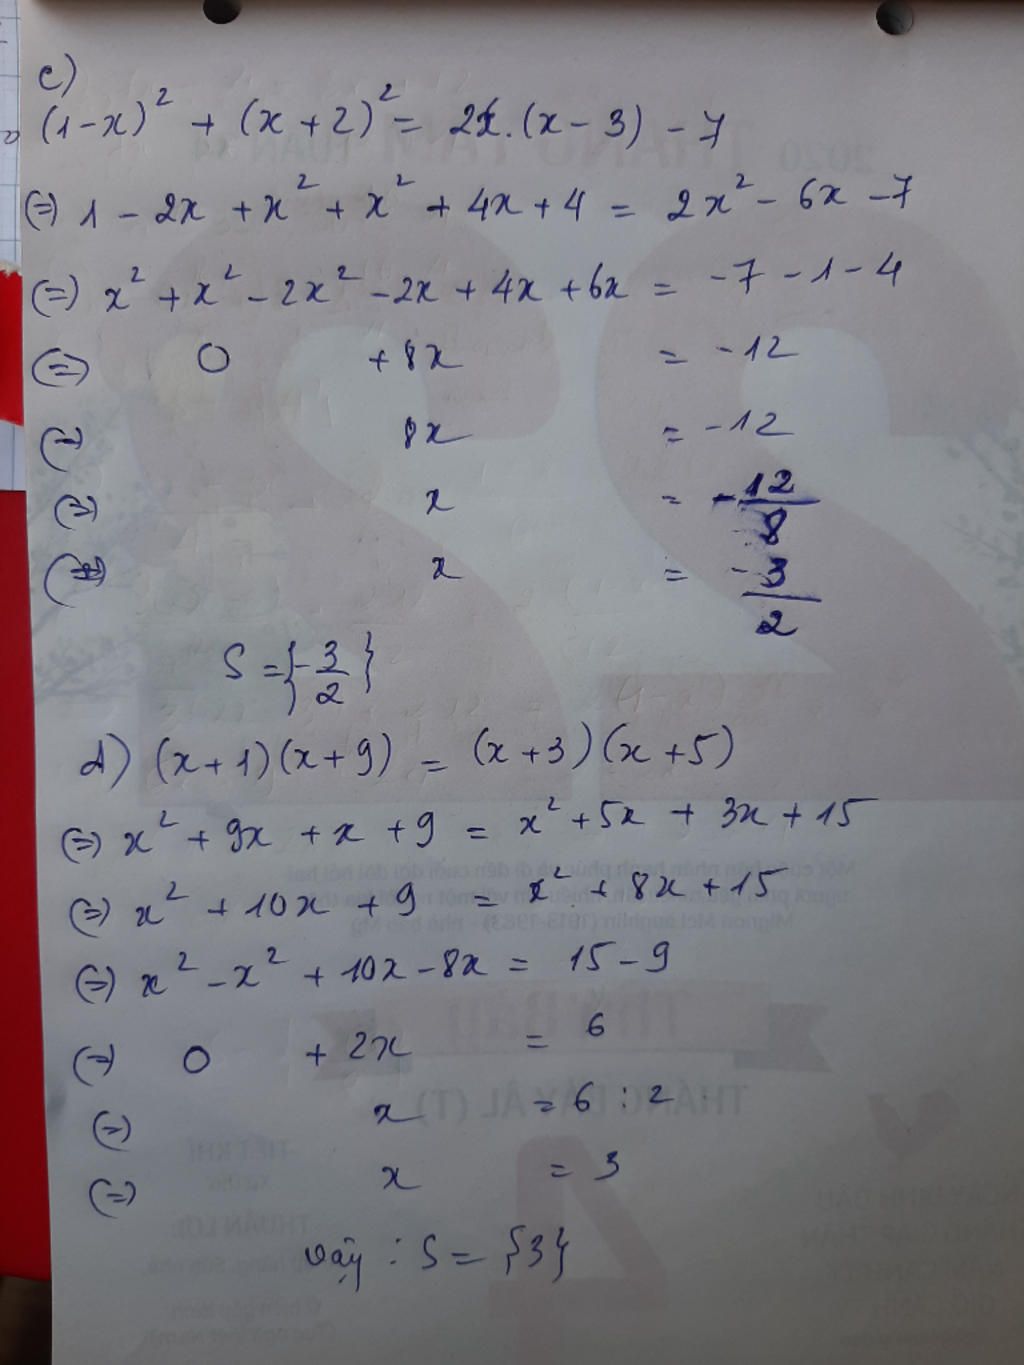 c)
(1-x)² + (x+2)² = 2x.(x-3) - 7
(=) 1 - 2x + x² + x² + 4x + 4 = 2x² - 6x - 7
(=) x² + x² - 2x² - 2x + 4x + 6x = -7 - 1 - 4
(=) 0 + 8x = -12
(=) 8x = -12
(=) x = -12/8
(=) x = -3/2
S = {-3/2}
d) (x+1)(x+9) = (x+3)(x+5)
(=) x² + 9x + x + 9 = x² + 5x + 3x + 15
(=) x² + 10x + 9 = x² + 8x + 15
(=) x² - x² + 10x - 8x = 15 - 9
(=) 0 + 2x = 6
(=) x = 6 : 2
(=) x = 3
Vậy : S = {3}